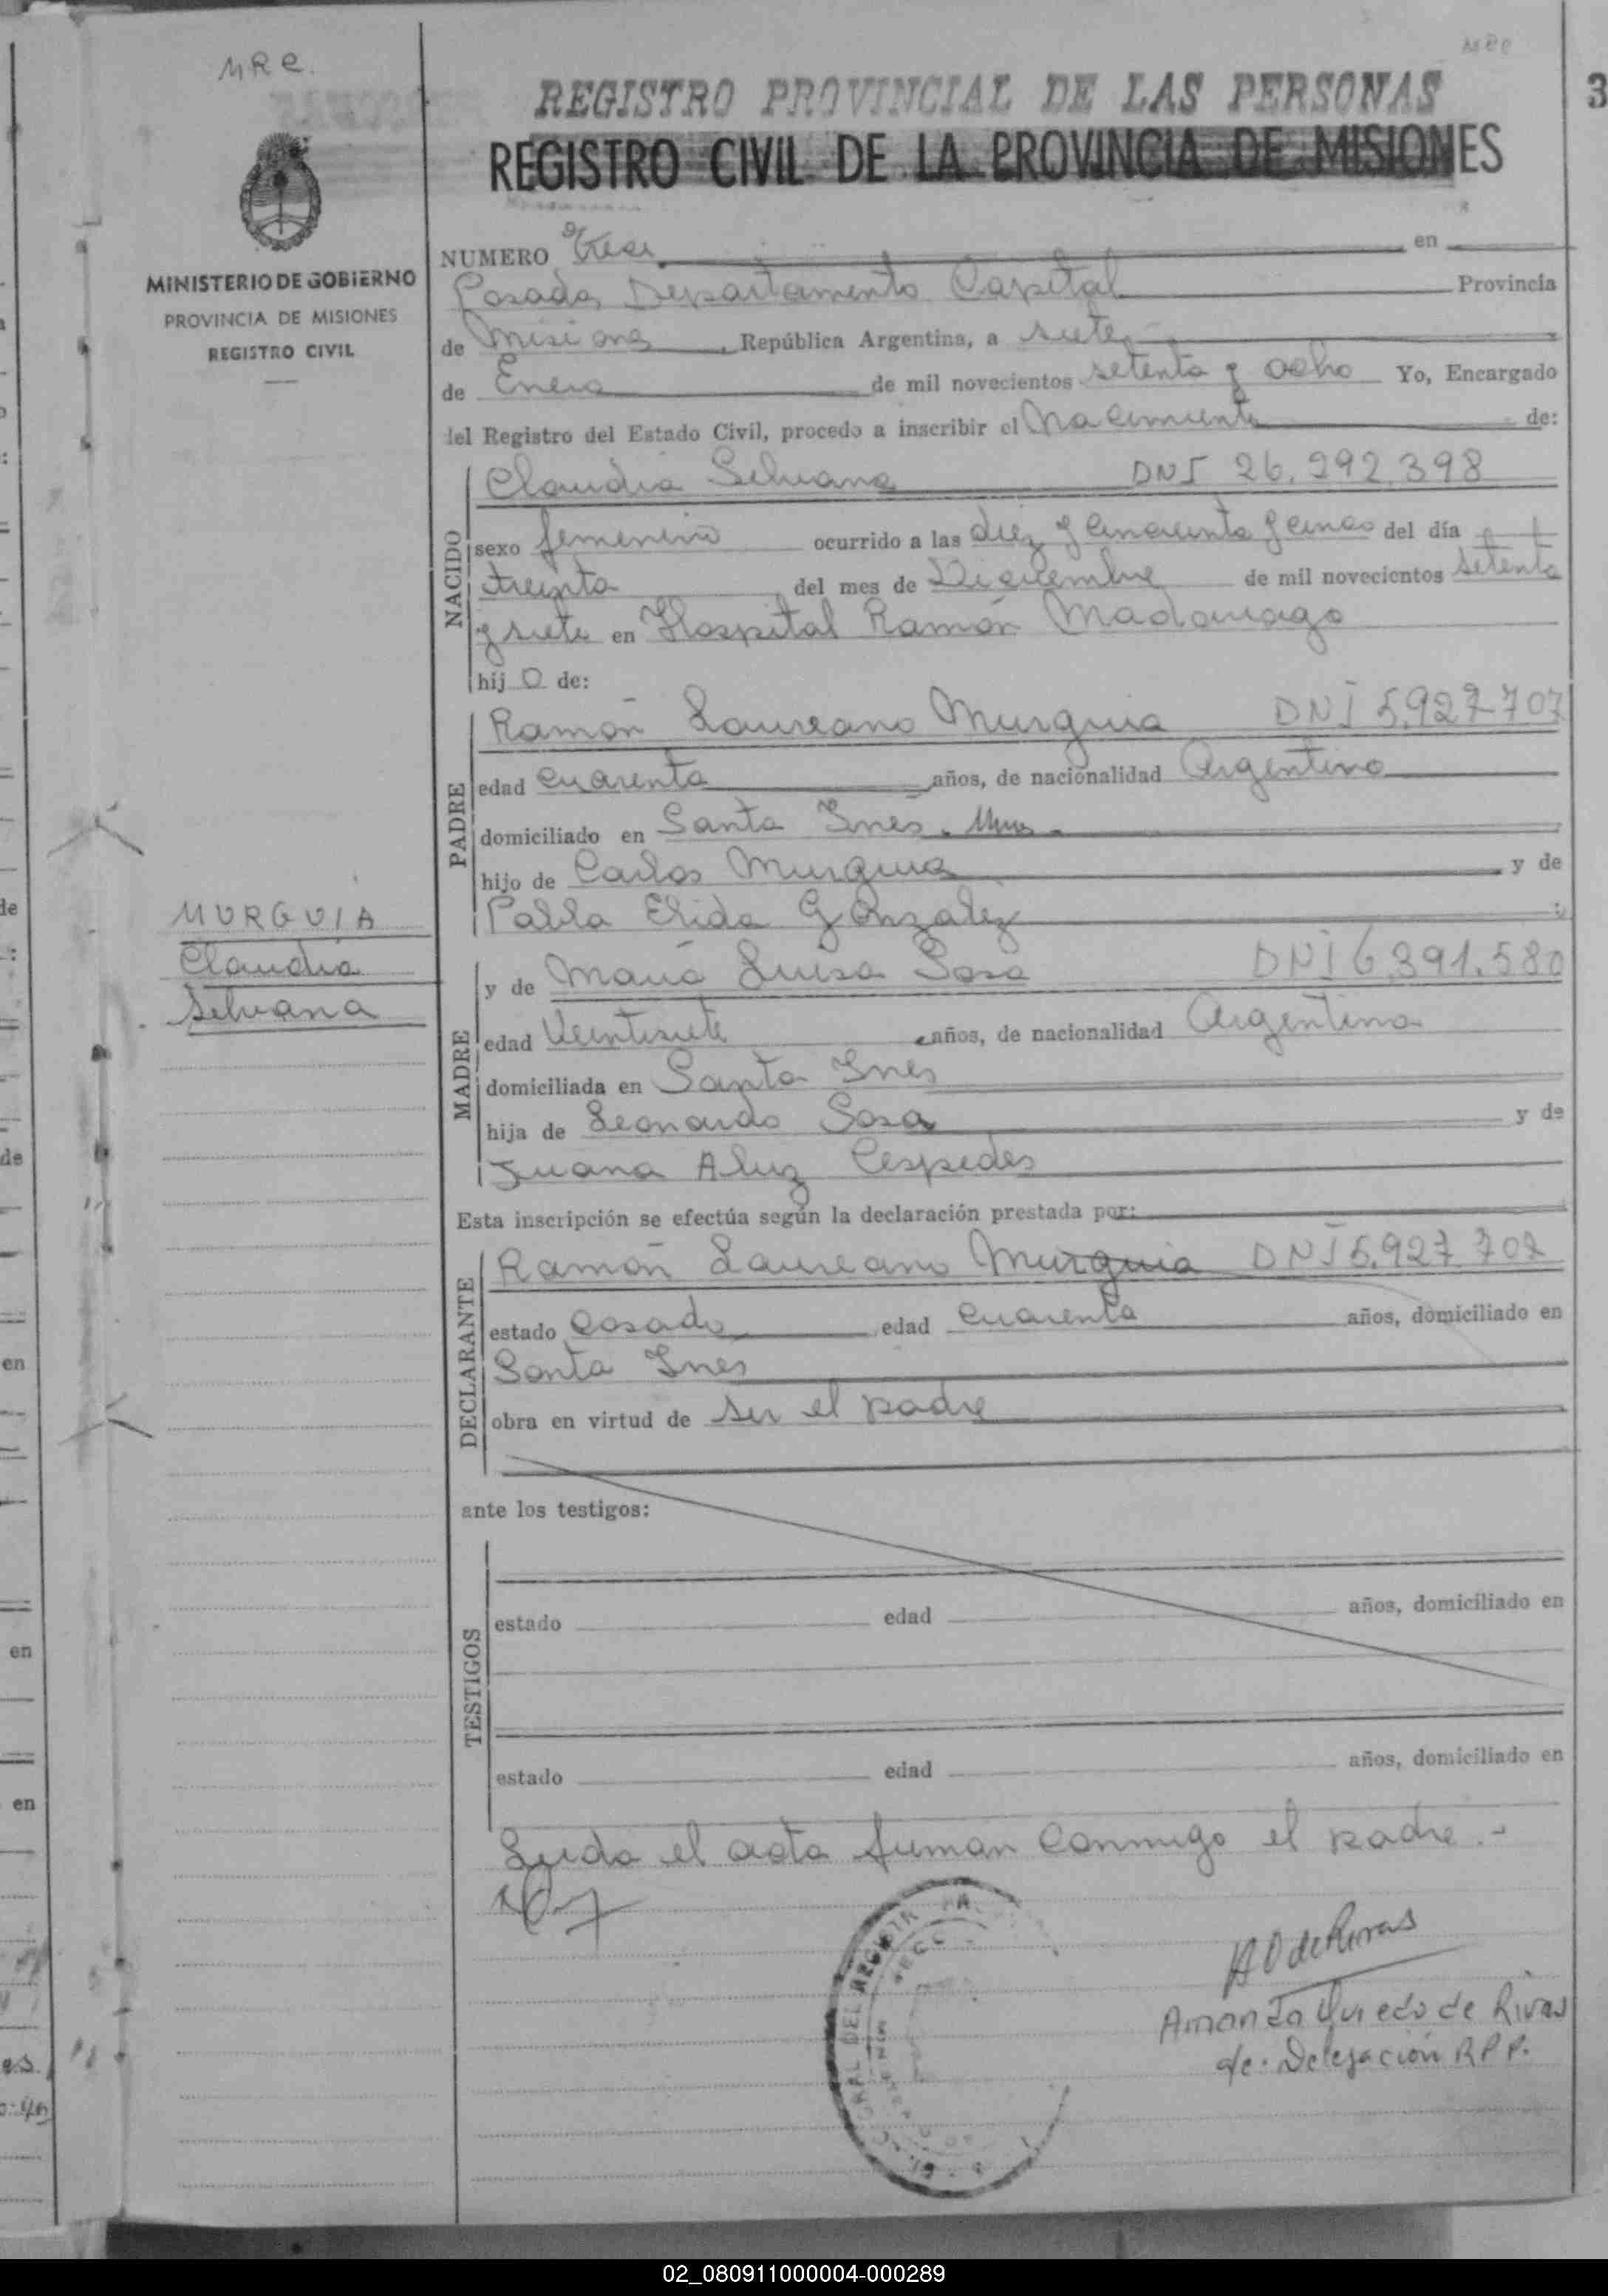 MRC.
REGISTRO PROVINCIAL DE LAS PERSONAS
3
REGISTRO CIVIL DE LA PROVINCIA DE MISIONES
MINISTERIO DE GOBIERNO
PROVINCIA DE MISIONES
REGISTRO CIVIL
NUMERO Tres en
Posadas Departamento Capital Provincia
de Misiones, República Argentina, a siete
de Enero de mil novecientos setenta y ocho Yo, Encargado
del Registro del Estado Civil, procedo a inscribir el Nacimiento de:
NACIDO
Claudia Silvana DNI 26.292.398
sexo femenino ocurrido a las diez y cincuenta y cinco del día
treinta del mes de Diciembre de mil novecientos setenta
y siete en Hospital Ramón Madariaga
hij O de:
PADRE
Ramón Laureano Murguia DNI 5.927.707
edad cuarenta años, de nacionalidad Argentino
domiciliado en Santa Ines. Mnes.
hijo de Carlos Murguia y de
Pabla Elida Gonzalez :
MURGUIA
Claudia
Silvana
MADRE
y de María Luisa Sosa DNI 6.391.580
edad Veintisiete años, de nacionalidad Argentina
domiciliada en Santa Ines
hija de Leonardo Sosa y de
Juana Cespedes
Esta inscripción se efectúa según la declaración prestada por:
DECLARANTE
Ramón Laureano Murguia DNI 5.927.707
estado Casado edad cuarenta años, domiciliado en
Santa Ines
obra en virtud de ser el padre
ante los testigos:
TESTIGOS
estado edad años, domiciliado en
estado edad años, domiciliado en
Leida el acta firman conmigo el padre.-
AO de Rivas
Amanda Oviedo de Rivas
a/c. Delegación R P P.
DEL REGISTR
02_080911000004-000289